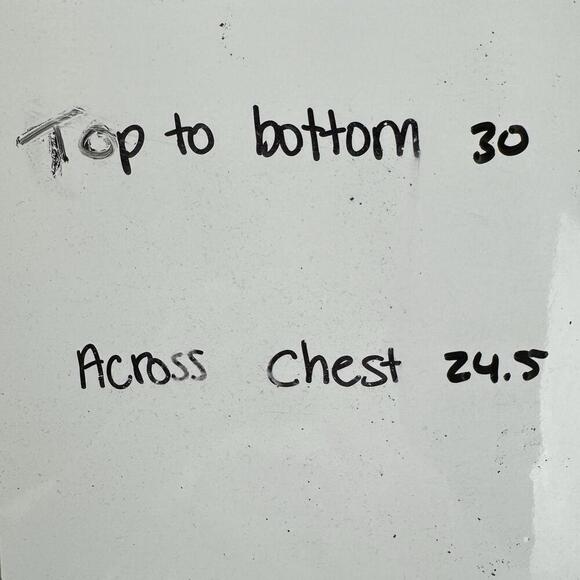 Top to bottom 30
Across Chest 24.5